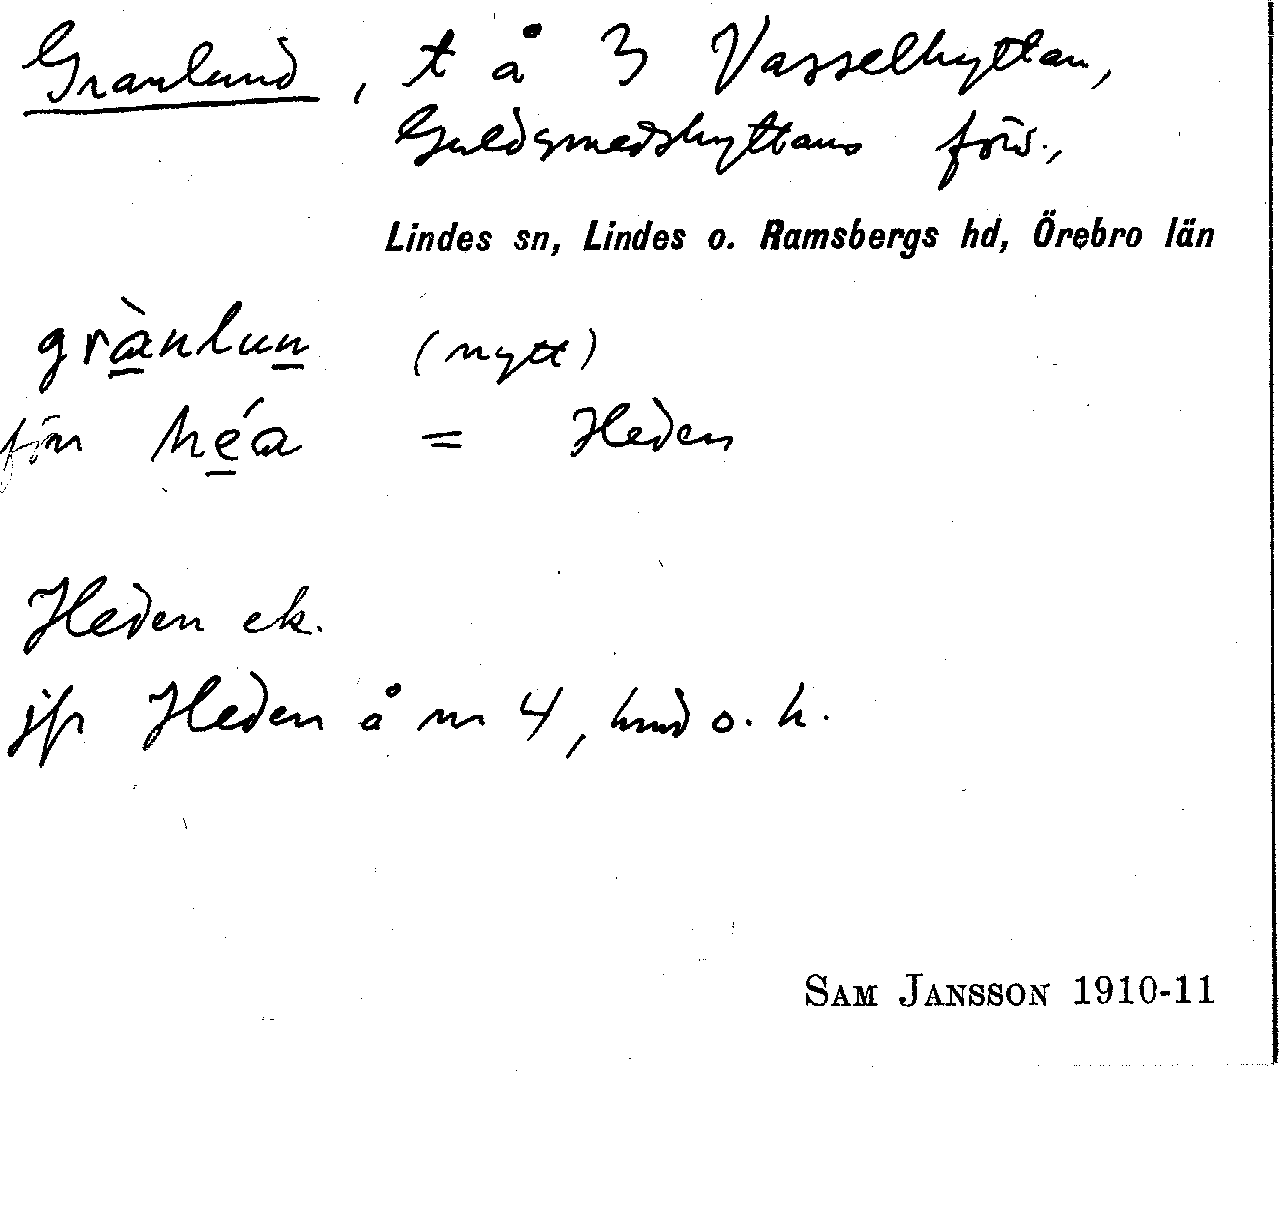 Granlund, t å 3 Vasselhyttan,
Guldsmedshyttans förs.,
Lindes sn, Lindes o. Ramsbergs hd, Örebro län
grànlun (nytt)
förr héa = Heden
Heden ek.
jfr Heden å nr 4, hmd o. h.
SAM JANSSON 1910-11